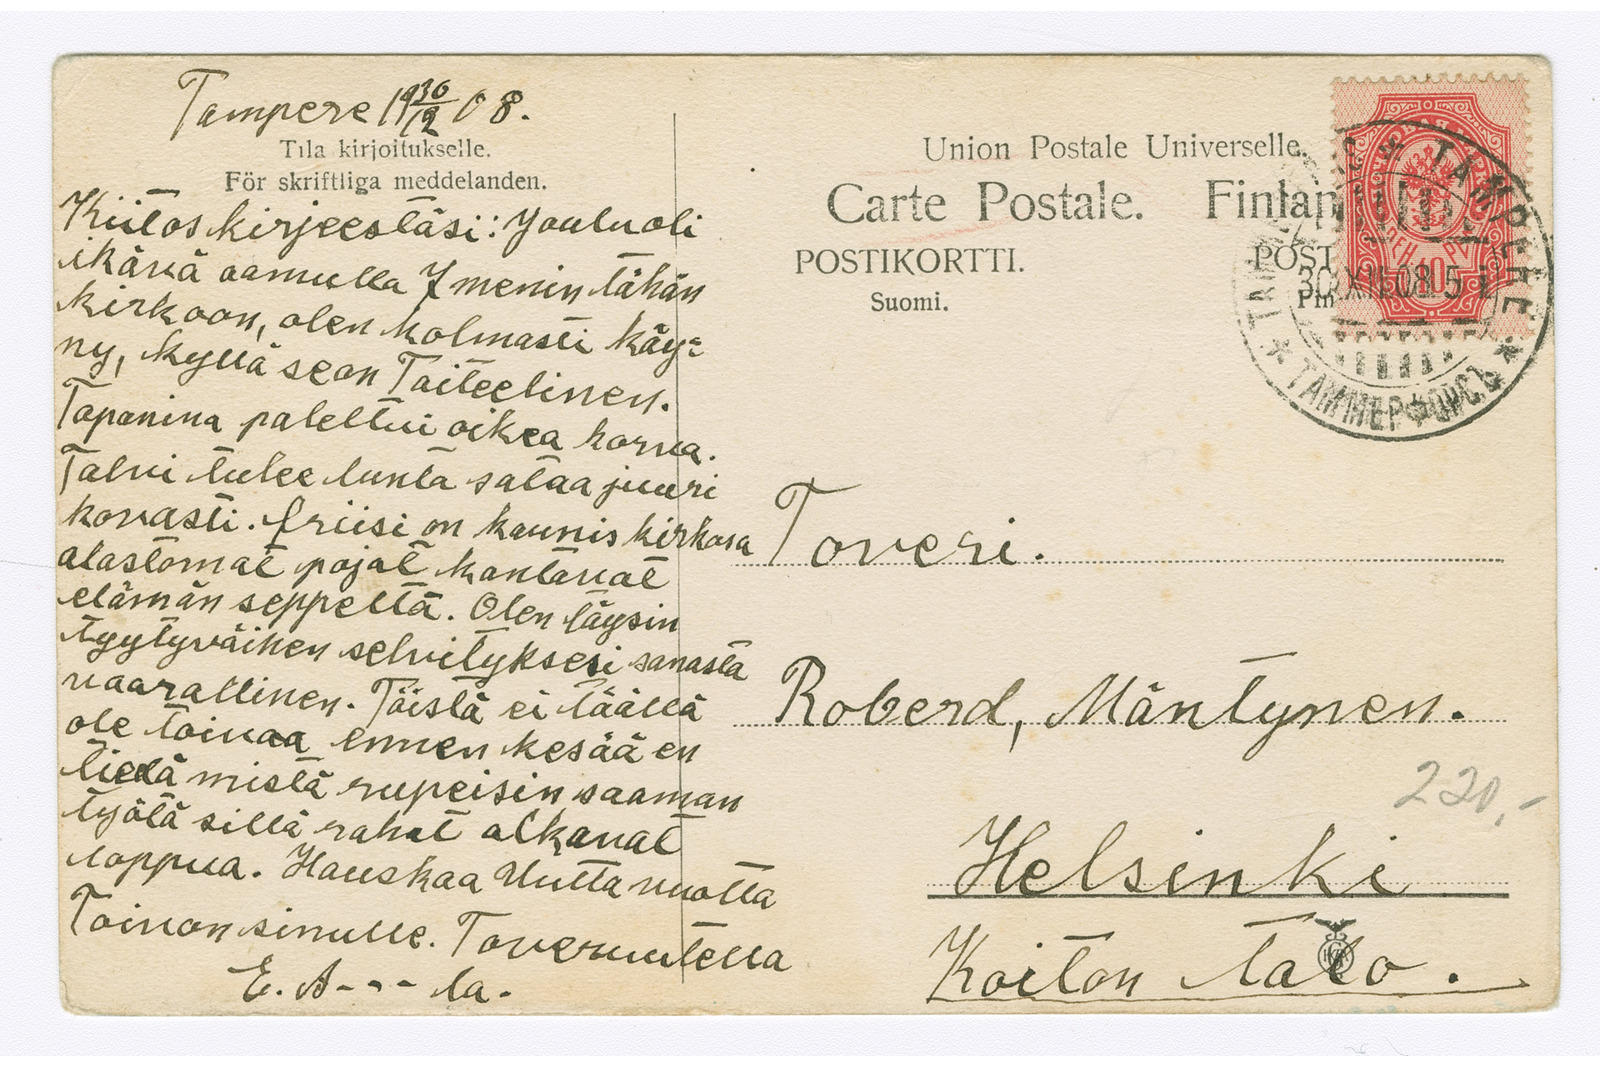 Tampere 19 30/12 08.
Tila kirjoitukselle.
För skriftliga meddelanden.
Kiitos kirjeestäsi: Jouluoli
ikävä aamulla 7 menin tähän
kirkoon, olen kolmasti käy=
ny, kyllä seon Taiteelinen.
Tapanina paleltui oikea korva.
Talvi tulee lunta sataa juuri
kovasti. friisi on kaunis kirkosa
alastomat pojat kantavat
elämän seppeltä. Olen täysin
tyytyväinen selvityksesi sanasta
vaarallinen. Töistä ei täällä
ole toivaa ennen kesää en
tiedä mistä rupeisin saaman
työtä sillä rahat alkavat
loppua. Hauskaa Uutta vuotta
Toivon sinulle. Toveruutella
E. A--- la.
Union Postale Universelle.
Carte Postale. Finlan
POSTIKORTTI. POST
Suomi. Fin
ТАММЕРФОРСЪ
TAMPERE
30.XII.08 5 i
10
Toveri.
Roberd, Mäntynen.
220,-
Helsinki
Koiton talo.